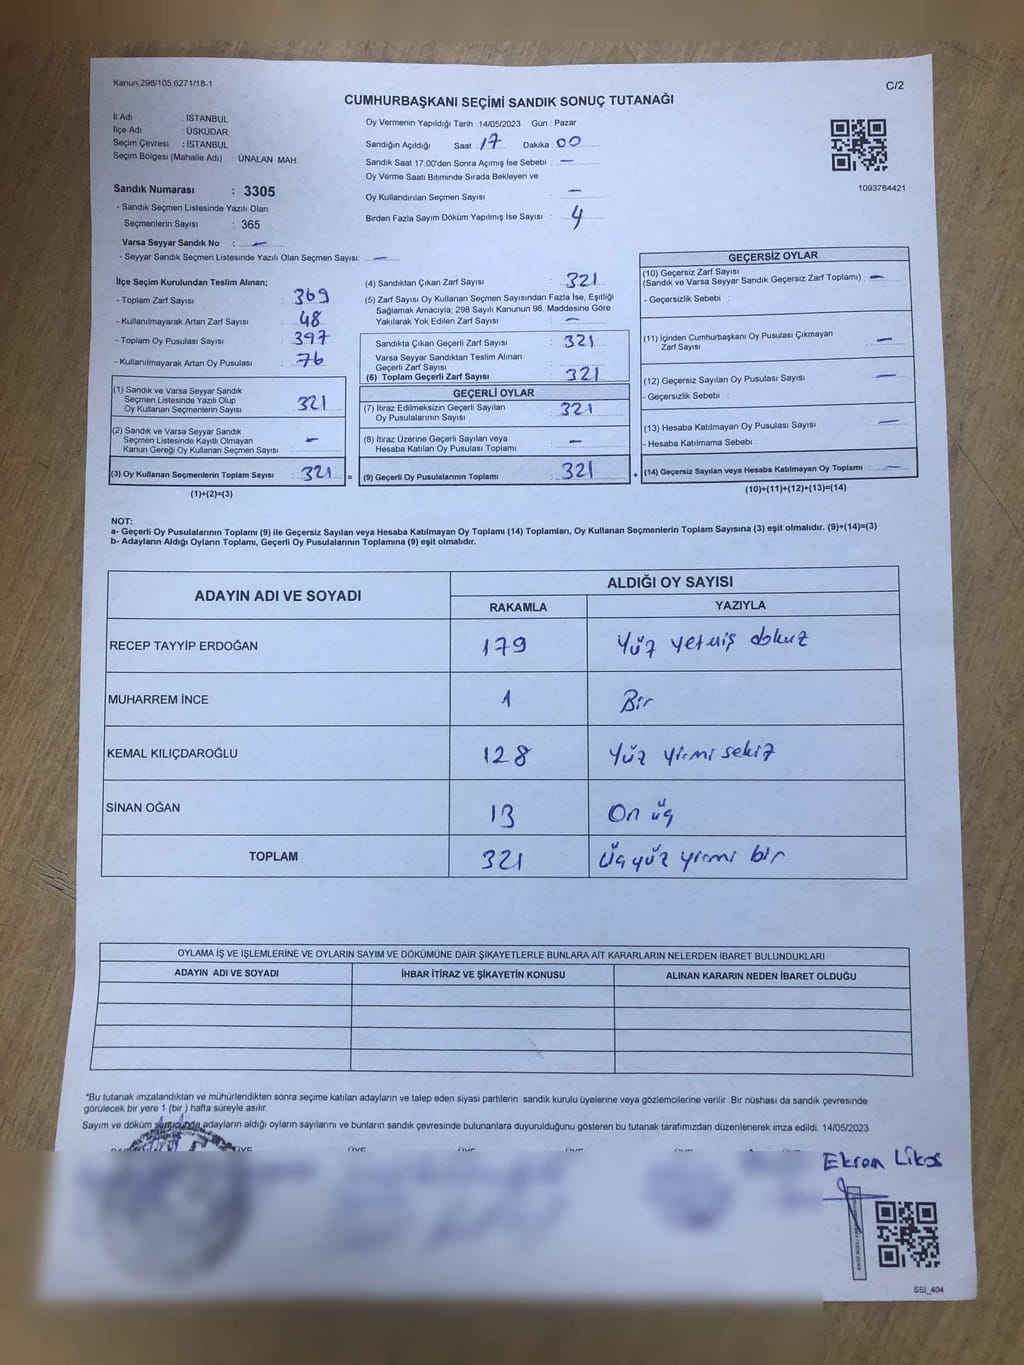 Kanun,298/105,6271/18-1
C/2
CUMHURBAŞKANI SEÇİMİ SANDIK SONUÇ TUTANAĞI
İl Adı : İSTANBUL
İlçe Adı : ÜSKÜDAR
Seçim Çevresi : İSTANBUL
Seçim Bölgesi (Mahalle Adı) : ÜNALAN MAH.
Sandık Numarası : 3305
- Sandık Seçmen Listesinde Yazılı Olan
Seçmenlerin Sayısı : 365
Varsa Seyyar Sandık No : —
- Seyyar Sandık Seçmen Listesinde Yazılı Olan Seçmen Sayısı: —
Oy Vermenin Yapıldığı Tarih :14/05/2023 Gün : Pazar
Sandığın Açıldığı Saat : 17 Dakika : 00
Sandık Saat 17:00'den Sonra Açımış İse Sebebi : —
Oy Verme Saati Bitiminde Sırada Bekleyen ve
Oy Kullandırılan Seçmen Sayısı : —
Birden Fazla Sayım Döküm Yapılmış İse Sayısı : 4
1093784421
İlçe Seçim Kurulundan Teslim Alınan;
- Toplam Zarf Sayısı : 369
- Kullanılmayarak Artan Zarf Sayısı : 48
- Toplam Oy Pusulası Sayısı : 397
- Kullanılmayarak Artan Oy Pusulası : 76
(1) Sandık ve Varsa Seyyar Sandık
Seçmen Listesinde Yazılı Olup
Oy Kullanan Seçmenlerin Sayısı : 321
(2) Sandık ve Varsa Seyyar Sandık
Seçmen Listesinde Kayıtlı Olmayan
Kanun Gereği Oy Kullanan Seçmen Sayısı : —
(3) Oy Kullanan Seçmenlerin Toplam Sayısı : 321 =
(1)+(2)=(3)
(4) Sandıktan Çıkan Zarf Sayısı : 321
(5) Zarf Sayısı Oy Kullanan Seçmen Sayısından Fazla İse, Eşitliği
Sağlamak Amacıyla; 298 Sayılı Kanunun 98. Maddesine Göre
Yakılarak Yok Edilen Zarf Sayısı : —
Sandıkta Çıkan Geçerli Zarf Sayısı : 321
Varsa Seyyar Sandıktan Teslim Alınan
Geçerli Zarf Sayısı :
(6) Toplam Geçerli Zarf Sayısı : 321
GEÇERLİ OYLAR
(7) İtiraz Edilmeksizin Geçerli Sayılan
Oy Pusulalarının Sayısı : 321
(8) İtiraz Üzerine Geçerli Sayılan veya
Hesaba Katılan Oy Pusulası Toplamı : —
(9) Geçerli Oy Pusulalarının Toplamı : 321 +
GEÇERSİZ OYLAR
(10) Geçersiz Zarf Sayısı
(Sandık ve Varsa Seyyar Sandık Geçersiz Zarf Toplamı) : —
- Geçersizlik Sebebi :
(11) İçinden Cumhurbaşkanı Oy Pusulası Çıkmayan
Zarf Sayısı : —
(12) Geçersiz Sayılan Oy Pusulası Sayısı : —
- Geçersizlik Sebebi :
(13) Hesaba Katılmayan Oy Pusulası Sayısı : —
- Hesaba Katılmama Sebebi :
(14) Geçersiz Sayılan veya Hesaba Katılmayan Oy Toplamı : —
(10)+(11)+(12)+(13)=(14)
NOT:
a- Geçerli Oy Pusulalarının Toplamı (9) ile Geçersiz Sayılan veya Hesaba Katılmayan Oy Toplamı (14) Toplamları, Oy Kullanan Seçmenlerin Toplam Sayısına (3) eşit olmalıdır. (9)+(14)=(3)
b- Adayların Aldığı Oyların Toplamı, Geçerli Oy Pusulalarının Toplamına (9) eşit olmalıdır.
ADAYIN ADI VE SOYADI
ALDIĞI OY SAYISI
RAKAMLA YAZIYLA
RECEP TAYYİP ERDOĞAN 179 Yüz yetmiş dokuz
MUHARREM İNCE 1 Bir
KEMAL KILIÇDAROĞLU 128 Yüz yirmi sekiz
SİNAN OĞAN 13 On üç
TOPLAM 321 Üçyüz yirmi bir
OYLAMA İŞ VE İŞLEMLERİNE VE OYLARIN SAYIM VE DÖKÜMÜNE DAİR ŞİKAYETLERLE BUNLARA AİT KARARLARIN NELERDEN İBARET BULUNDUKLARI
ADAYIN ADI VE SOYADI İHBAR İTİRAZ VE ŞİKAYETİN KONUSU ALINAN KARARIN NEDEN İBARET OLDUĞU
*Bu tutanak imzalandıktan ve mühürlendikten sonra seçime katılan adayların ve talep eden siyasi partilerin sandık kurulu üyelerine veya gözlemcilerine verilir. Bir nüshası da sandık çevresinde
görülecek bir yere 1 (bir ) hafta süreyle asılır.
Sayım ve döküm sonucunda adayların aldığı oyların sayılarını ve bunların sandık çevresinde bulunanlara duyurulduğunu gösteren bu tutanak tarafımızdan düzenlenerek imza edildi. 14/05/2023
ÜYE ÜYE ÜYE ÜYE ÜYE
SSİ_404